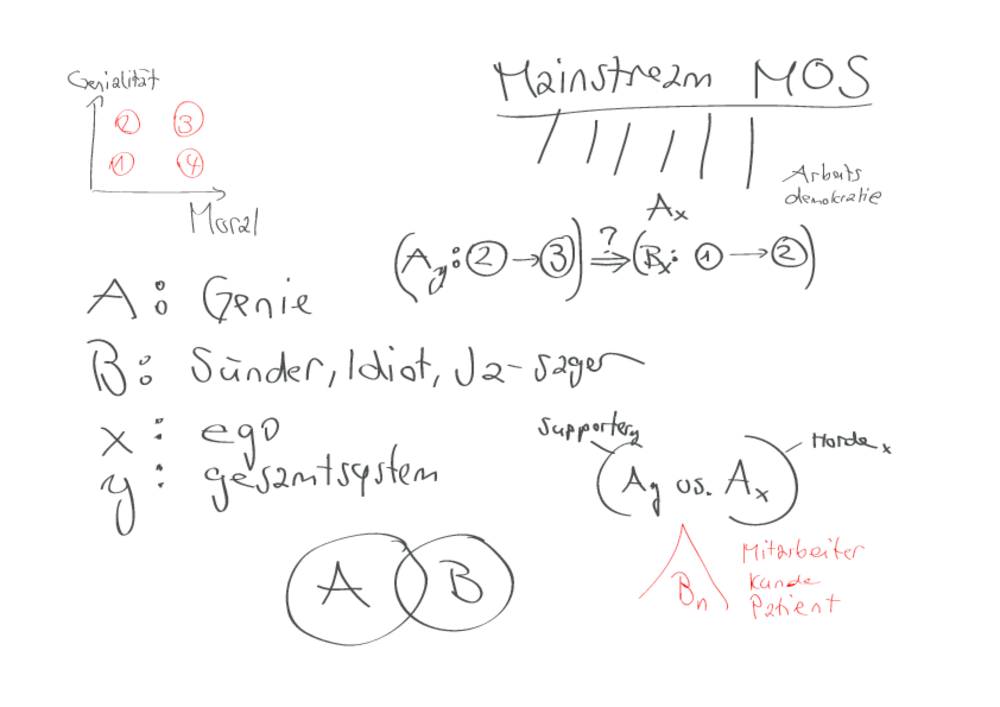 Genialität
② ③
① ④
Moral
Mainstream MOS
Arbeits
demokratie
Ax
(Ay: ② → ③) ?⇒ (Bx: ① → ②)
A: Genie
B: Sünder, Idiot, Ja-sager
x: ego
y: gesamtsystem
Supportery
Horde x
(Ay vs. Ax)
Bn
Mitarbeiter
Kunde
Patient
A B